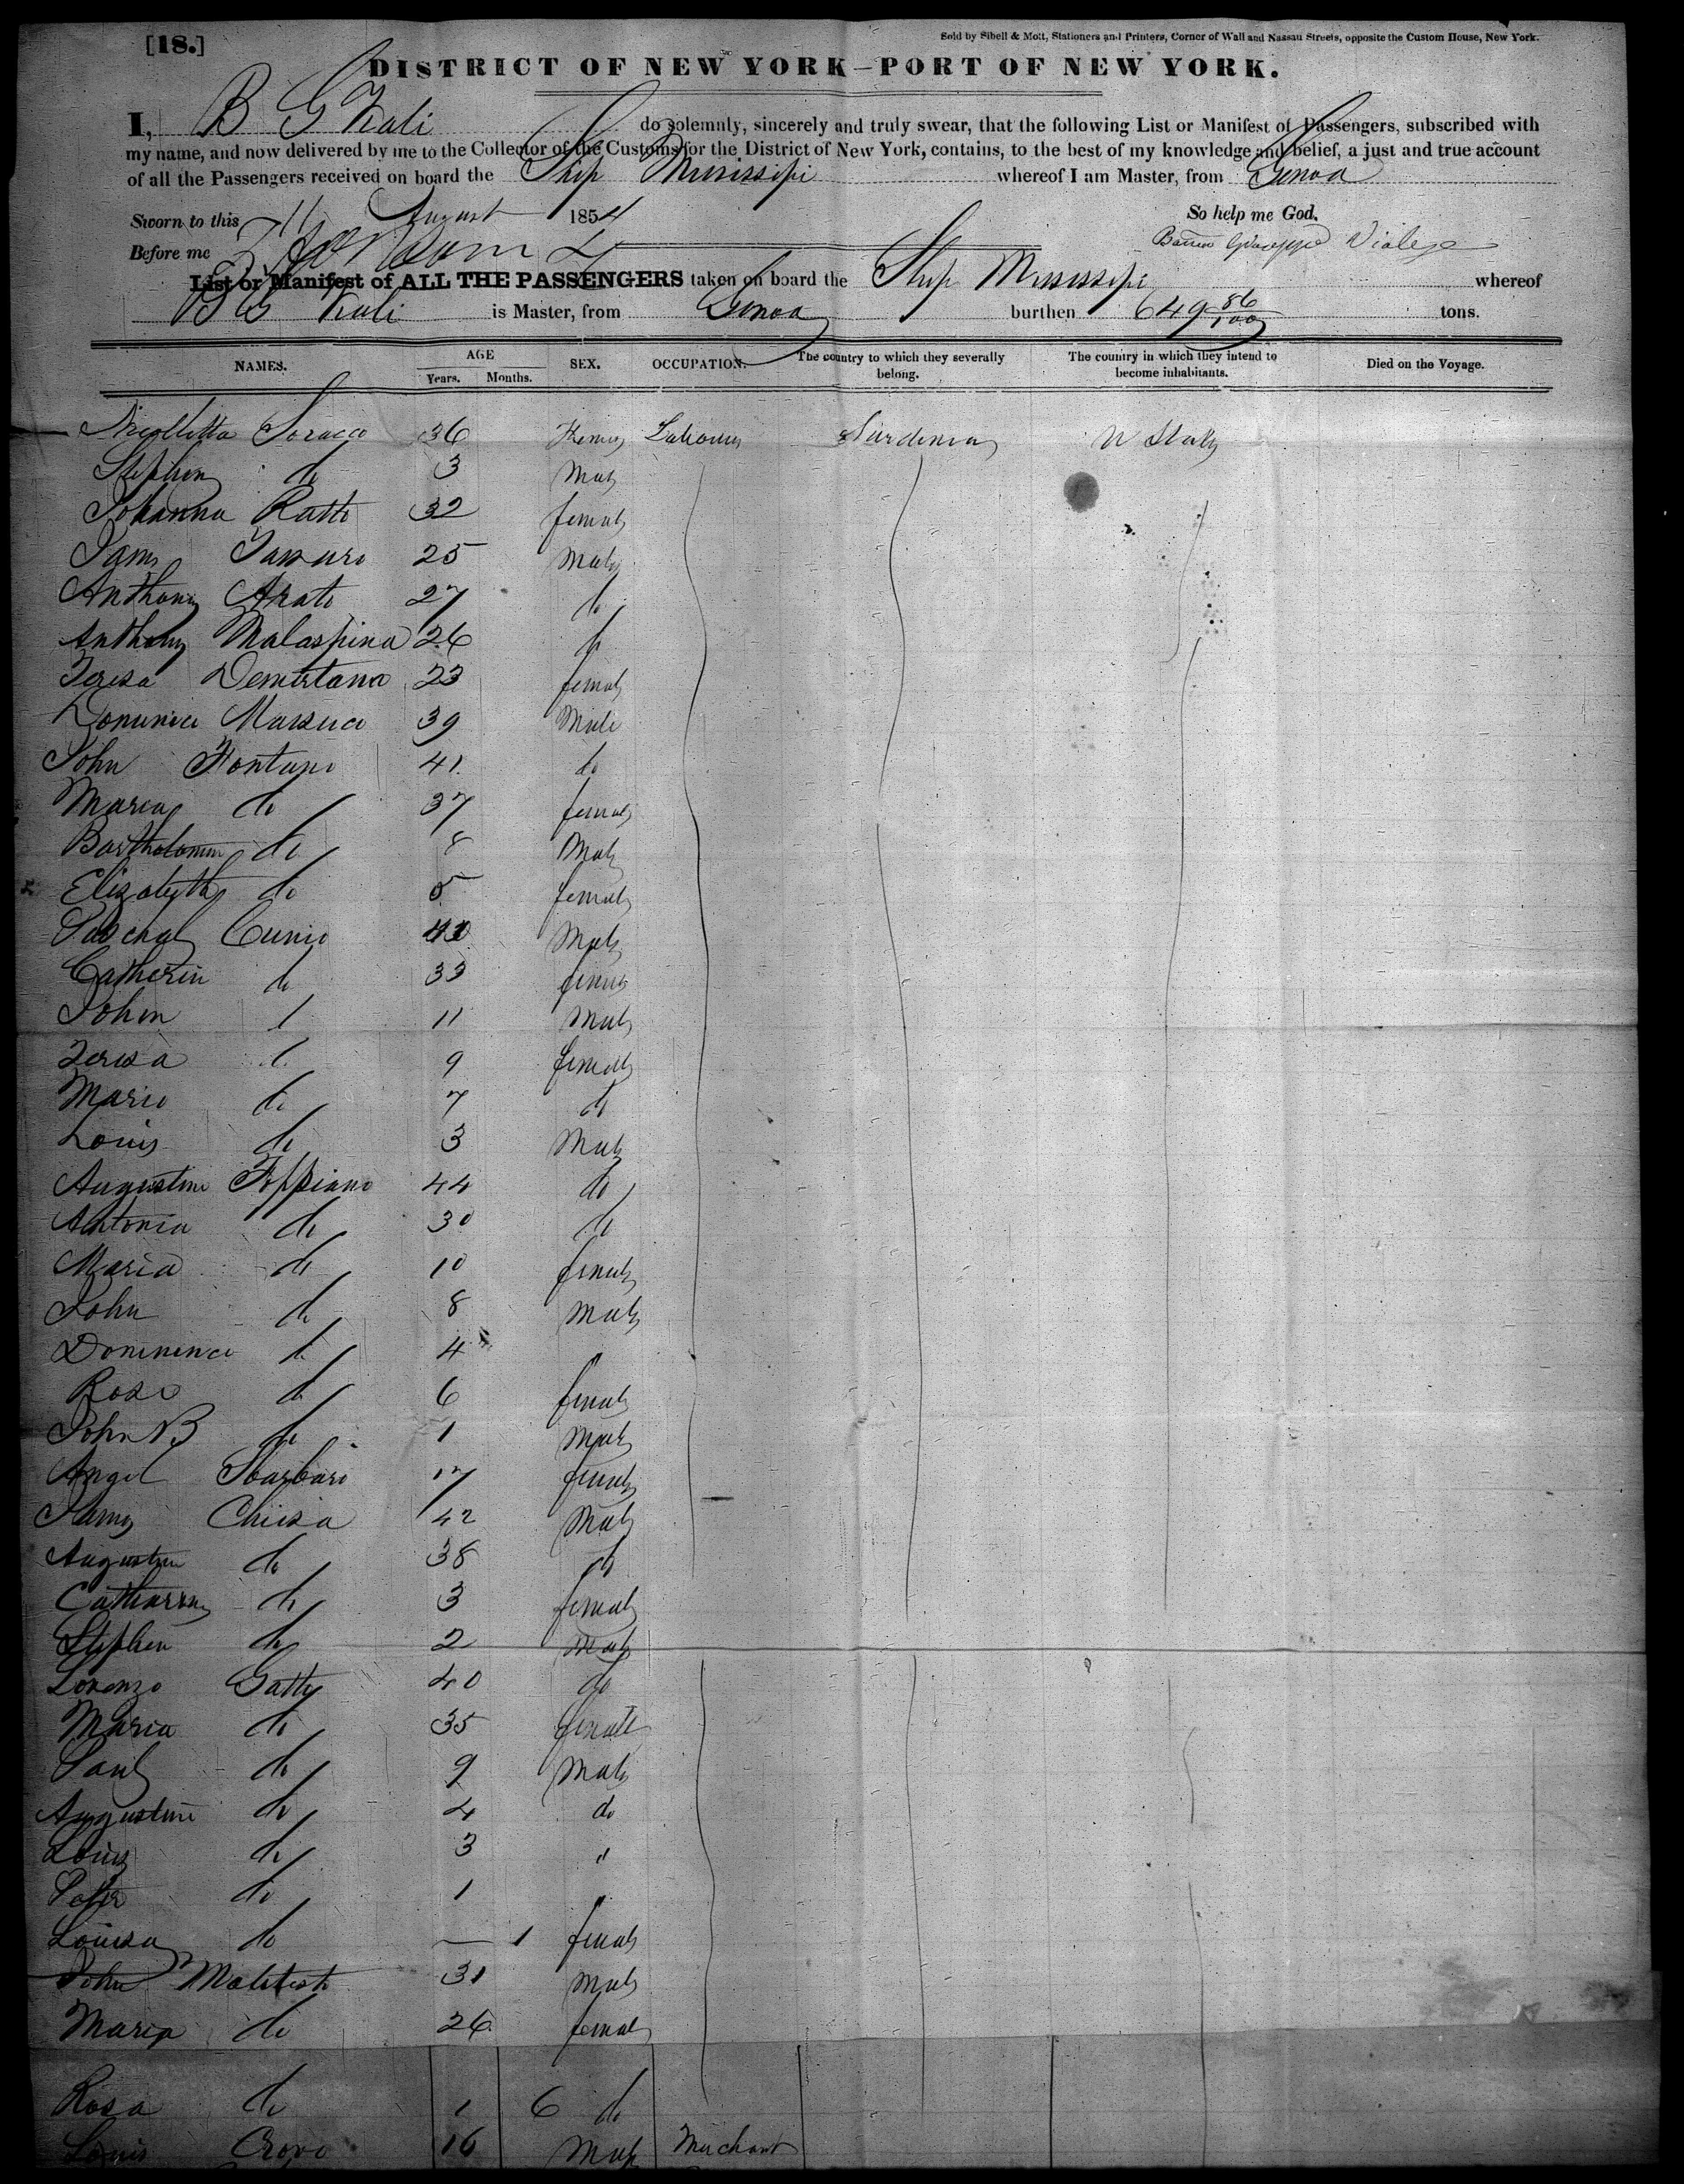 [18.]
Sold by Sibell & Mott, Stationers and Printers, Corner of Wall and Nassau Streets, opposite the Custom House, New York.
DISTRICT OF NEW YORK—PORT OF NEW YORK.
I, B G Kali do solemnly, sincerely and truly swear, that the following List or Manifest of Passengers, subscribed with
my name, and now delivered by me to the Collector of the Customs for the District of New York, contains, to the best of my knowledge and belief, a just and true account
of all the Passengers received on board the Ship Mississipi whereof I am Master, from Genoa
Sworn to this 11 August 1854 So help me God.
Before me
List or Manifest of ALL THE PASSENGERS taken on board the Ship Mississipi whereof
B G Kali is Master, from Genoa burthen 649 86/100 tons.
NAMES. AGE Years. Months. SEX. OCCUPATION. The country to which they severally belong. The country in which they intend to become inhabitants. Died on the Voyage.
Nicolletta Soracco 36 Female Labourer Sardinia U States
Stephen do 3 Male
Johanna Ratto 32 female
James 25 Male
Anthony Arato 27 do
Anthony Malaspina 26 do
Teresa 23 female
Massuco 39 Male
John Fontano 41 do
Maria do 37 female
Bartholomew do 8 Male
Elizabeth do 5 female
Paschal Cunio Male
Catherin do 33 female
John do 11 Male
Teresa do 9 female
Marie do 7 do
Louis do 3 Male
Augustine Foppiano 44 do
Antonia do 30 do
Maria do 10 female
John do 8 Male
do 4 "
Rose do 6 female
John B do 1 Male
Angel Sbarbaro 17 female
James Chiesa 42 Male
Augustine do 38 do
Catharine do 3 female
Stephen do 2 Male
Lorenzo Gatty 40 do
Maria do 35 female
Paul do 9 Male
Augustine do 4 do
Louis do 3 "
Peter do 1 "
Louisa do — 1 female
John 31 Male
Maria do 26 female
Rosa do 1 6 do
Louis Crovo 16 Male Merchant